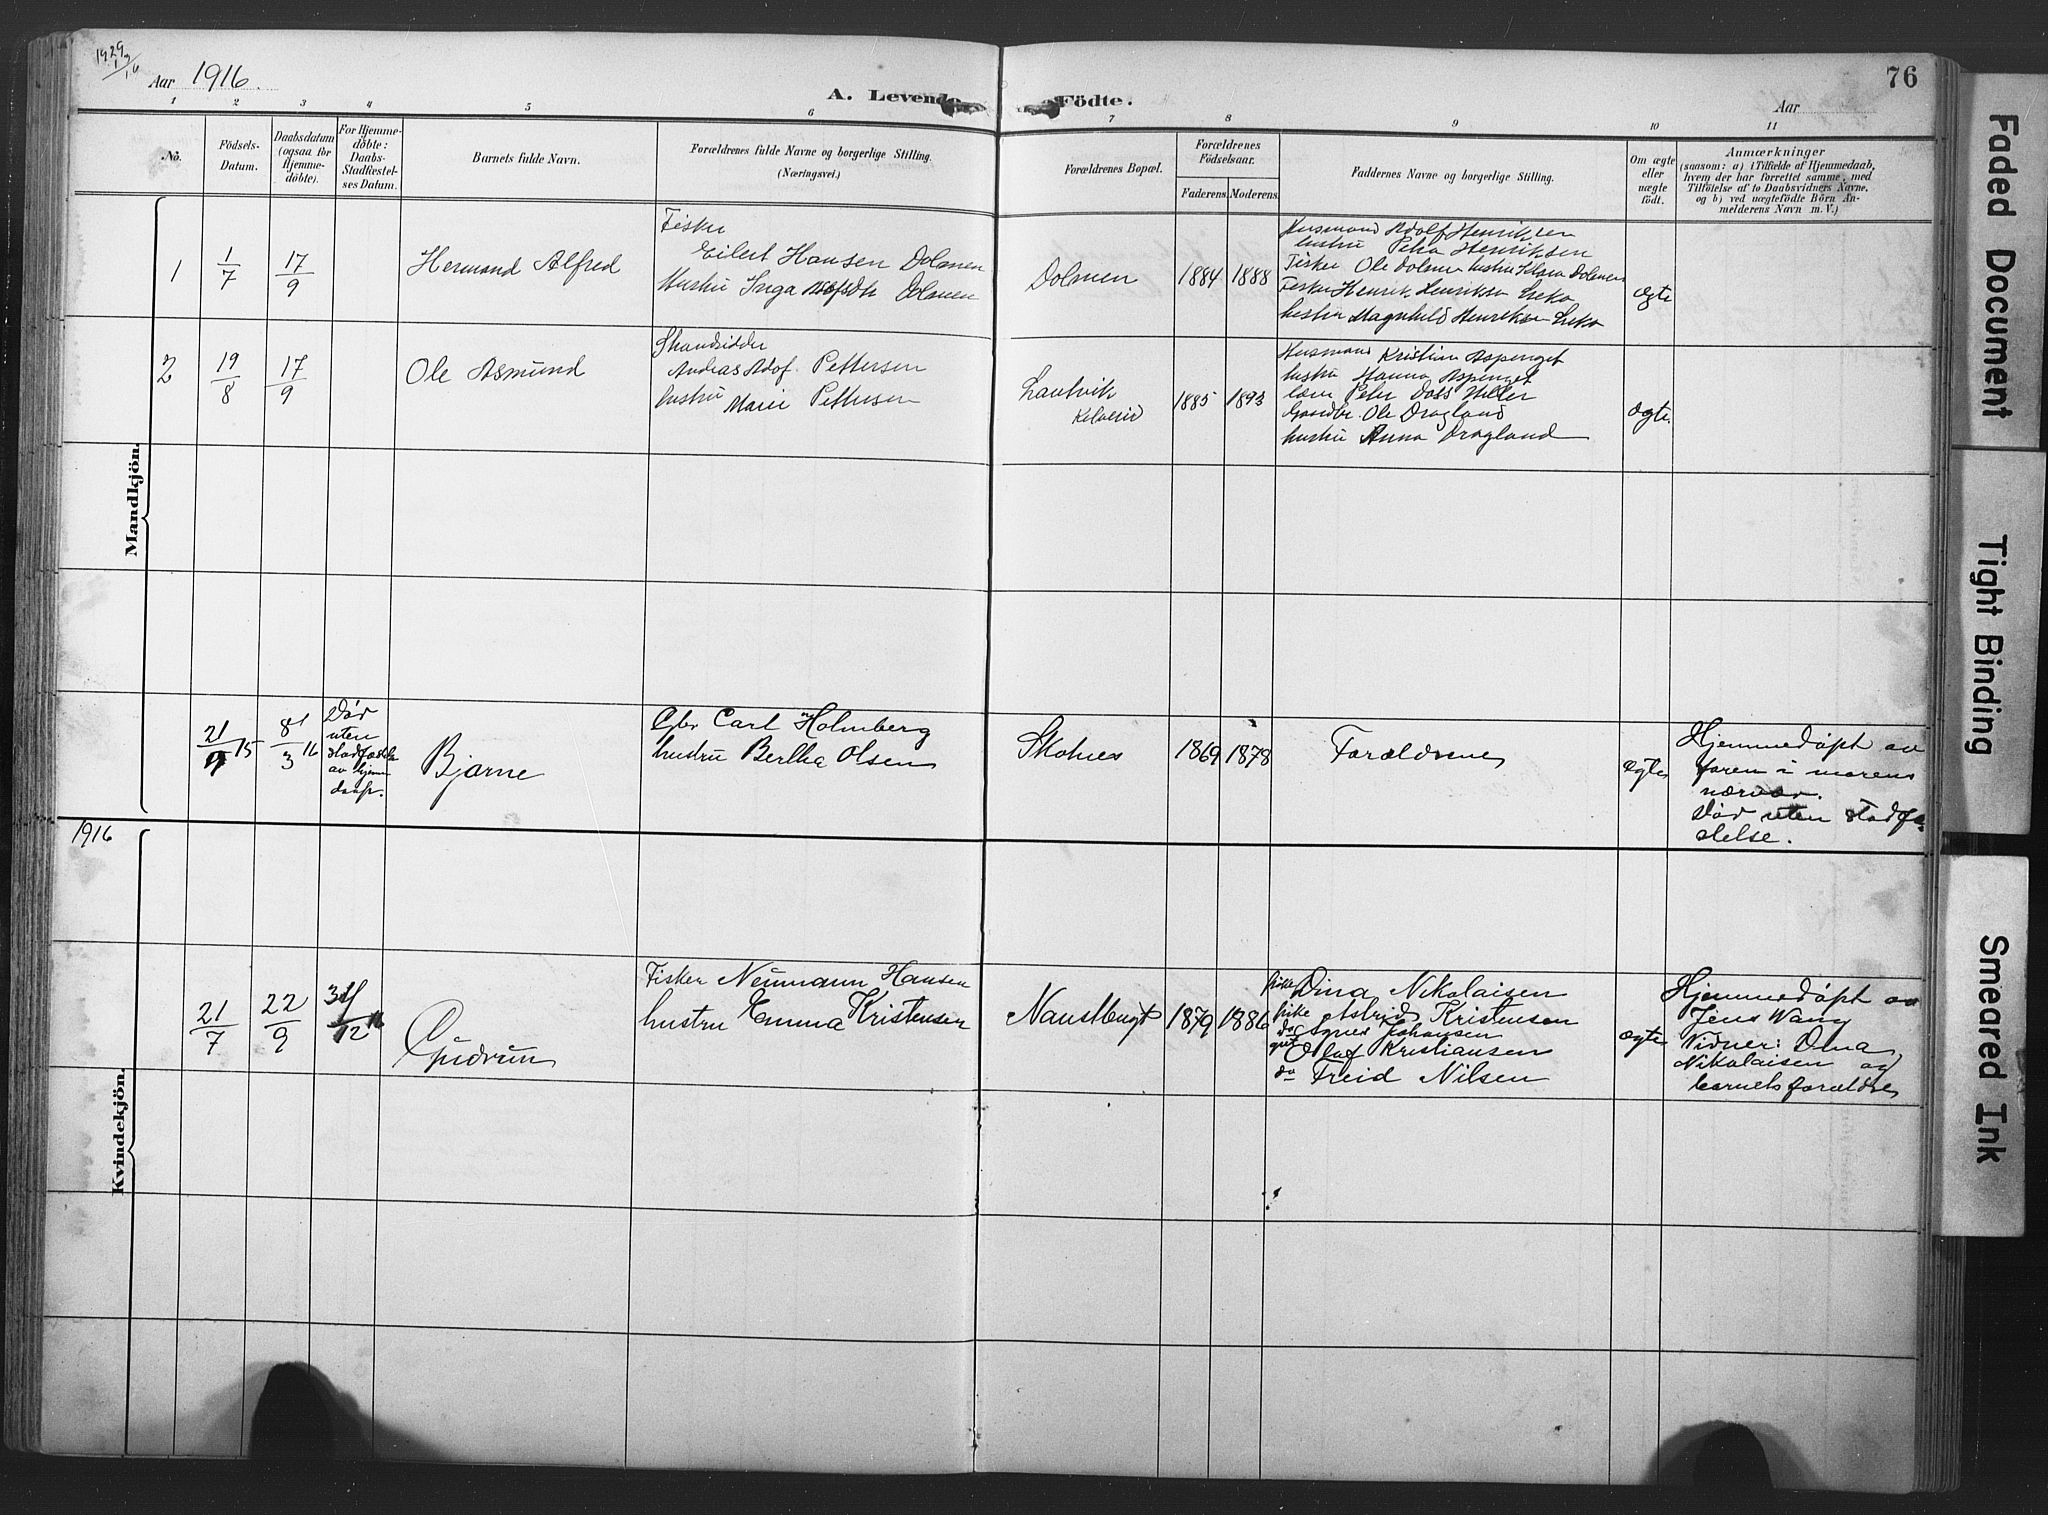 1929
Aar 1916.
A. Levende
Födte.
Aar
76
1 2 3 4 5 6 7 8 9 10 11
No.
Födsels-
Datum.
Daabsdatum
(ogsaa for
Hjemme-
döbte).
For Hjemme-
döbte:
Daabs-
Stadfæstel-
ses Datum.
Barnets fulde Navn.
Forældrenes fulde Navne og borgerlige Stilling.
(Næringsvei.)
Forældrenes Bopæl.
Forældrenes
Födselsaar.
Faderens. Moderens.
Faddernes Navne og borgerlige Stilling.
Om ægte
eller
uægte
födt.
Anmærkninger
(saasom: a) i Tilfælde af Hjemmedaab,
hvem der har forrettet samme, med
Tilföielse af to Daabsvidners Navne,
og b) ved uægtefödte Börn An-
melderens Navn m. V.)
Mandkjön.
1
1/7
17/9
Hermand Alfred
Fisker
Eilert Hansen Dolmen
Hustru Inga Dolmen
Dolmen
1884
1888
Husmand Adolf Henriksen
hustru Petra Henriksen
Fisker Ole Dolmen hustru Klara Dolmen
Fisker Henrik Henriksen Leka
hustru Magnhild Henriksen Leka
ægte
2
19/8
17/9
Ole Asmund
Strandsidder
Andreas Adof Pettersen
hustru
Marie Pettersen
Lautvik
Kolvereid
1885
1893
Husmand Kristian Aspenget
hustru Hanna Aspenget
Peter Dass
Gaardbr. Ole Dragland
hustru Anna Dragland
ægte
21/9 15
8/3 16
Död
uten
stadfæstelse
av hjemme
daap.
Bjarne
Gbr Carl Holmberg
hustru Bertha Olsen
Skotnes
1869
1878
Forældrene
ægte
Hjemmedøpt av
faren i morens
nærvær.
Död uten stadfæ-
stelse.
1916
Kvindekjön.
21/7
22/9
31/12 16
Gudrun
Fisker Neumann Hansen
hustru Emma Kristensen
Naustbugt
1879
1886
Dina Nikolaisen
Astrid Kristensen
do Agnes Johansen
Olaf Kristiansen
do Freid Nilsen
ægte
Hjemmedøpt av
Jens Wang
Vidner: Dina
Nikolaisen og
barnets forældre
Faded Document
Tight Binding
Smeared Ink